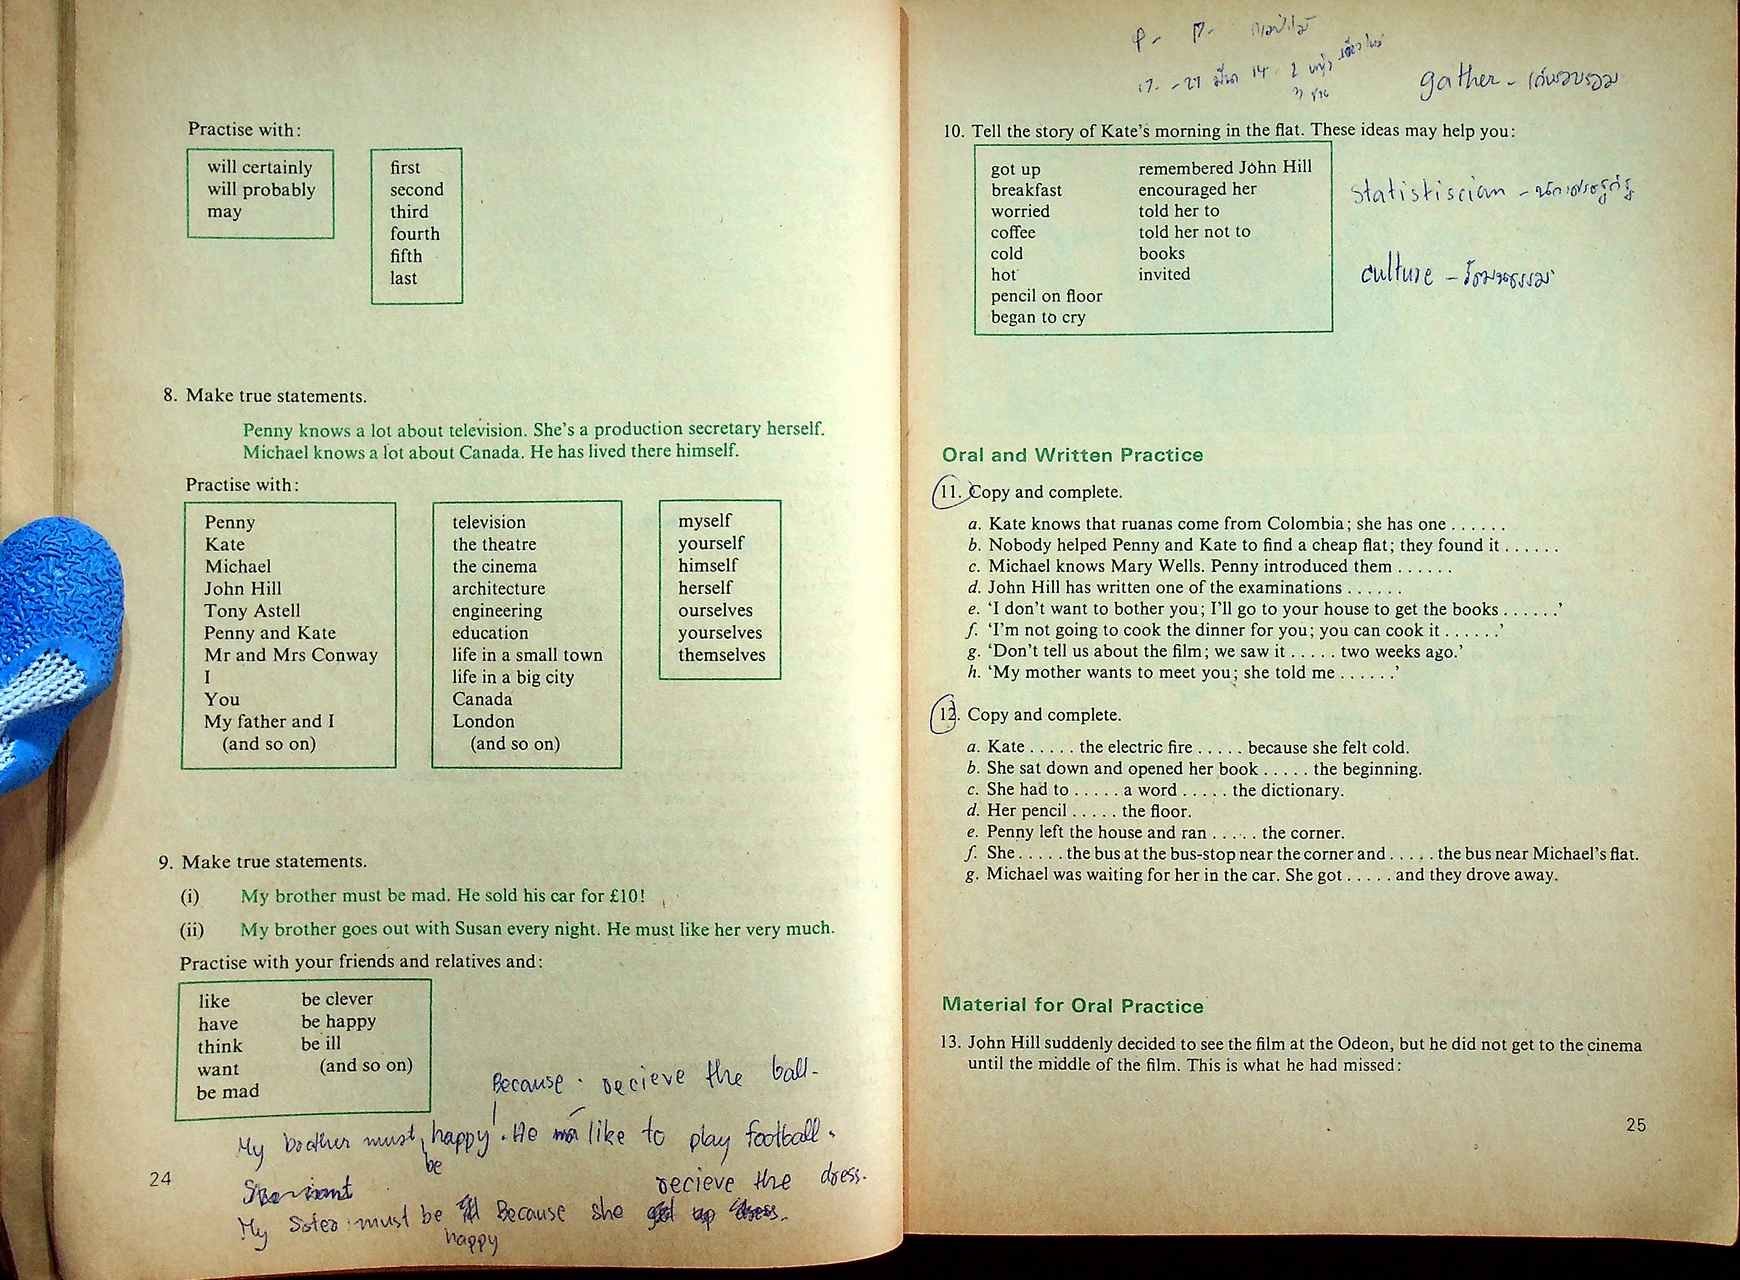 Practise with:
will certainly
will probably
may
first
second
third
fourth
fifth
last
8. Make true statements.
Penny knows a lot about television. She's a production secretary herself.
Michael knows a lot about Canada. He has lived there himself.
Practise with:
Penny
Kate
Michael
John Hill
Tony Astell
Penny and Kate
Mr and Mrs Conway
I
You
My father and I
(and so on)
television
the theatre
the cinema
architecture
engineering
education
life in a small town
life in a big city
Canada
London
(and so on)
myself
yourself
himself
herself
ourselves
yourselves
themselves
9. Make true statements.
(i) My brother must be mad. He sold his car for £10!
(ii) My brother goes out with Susan every night. He must like her very much.
Practise with your friends and relatives and:
like
have
think
want
be mad
be clever
be happy
be ill
(and so on)
Because. recieve the ball.
My brother must happy. He like to play football.
be
recieve the dress.
My must be Because she
happy
24
gather - เก็บรวบรวม
10. Tell the story of Kate's morning in the flat. These ideas may help you:
got up
breakfast
worried
coffee
cold
hot
pencil on floor
began to cry
remembered John Hill
encouraged her
told her to
told her not to
books
invited
statistiscian -
culture -
Oral and Written Practice
11. Copy and complete.
a. Kate knows that ruanas come from Colombia; she has one . . . . . .
b. Nobody helped Penny and Kate to find a cheap flat; they found it . . . . . .
c. Michael knows Mary Wells. Penny introduced them . . . . . .
d. John Hill has written one of the examinations . . . . . .
e. ‘I don't want to bother you; I'll go to your house to get the books . . . . . .’
f. ‘I'm not going to cook the dinner for you; you can cook it . . . . . .’
g. ‘Don't tell us about the film; we saw it . . . . . two weeks ago.’
h. ‘My mother wants to meet you; she told me . . . . . .’
12. Copy and complete.
a. Kate . . . . . the electric fire . . . . . because she felt cold.
b. She sat down and opened her book . . . . . the beginning.
c. She had to . . . . . a word . . . . . the dictionary.
d. Her pencil . . . . . the floor.
e. Penny left the house and ran . . . . . the corner.
f. She . . . . . the bus at the bus-stop near the corner and . . . . . the bus near Michael's flat.
g. Michael was waiting for her in the car. She got . . . . . and they drove away.
Material for Oral Practice
13. John Hill suddenly decided to see the film at the Odeon, but he did not get to the cinema
until the middle of the film. This is what he had missed:
25